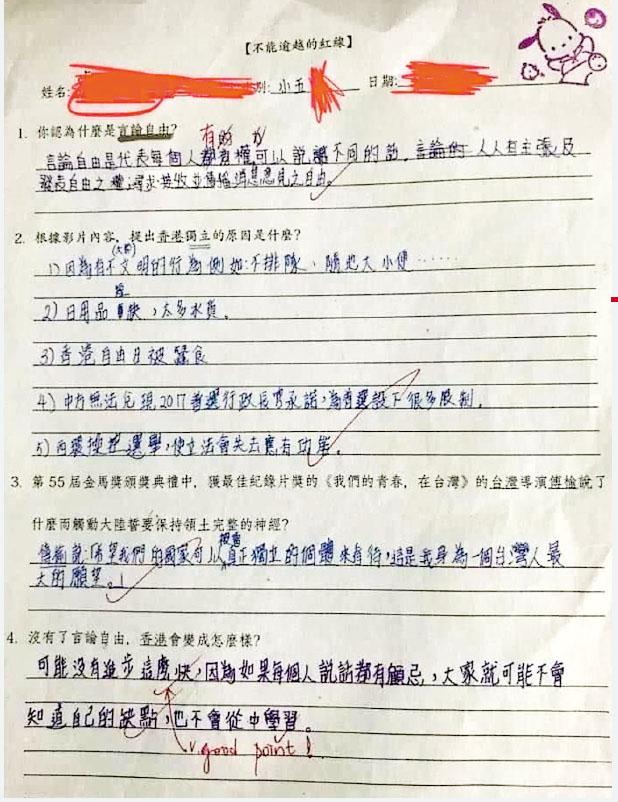 【不能逾越的紅線】
姓名: 別: 小五 日期:
1. 你認為什麼是言論自由?
言論自由是代表每個人都有權可以說出不同的話，言論的 人人有主張及
發表自由之權;尋求、接收並傳播消息意見之自由。
2. 根據影片內容，提出香港獨立的原因是什麼?
(大陸)
1) 因為有不文明的行為例如:不排隊、隨地大小便……
2) 日用品短缺，太多水貨。
3) 香港自由日被蠶食
4) 中方無法兌現2017普選行政長官承諾，為普選設下很多限制。
5) 內環操控選舉，使立法會失去應有功能。
3. 第55屆金馬獎頒獎典禮中，獲最佳紀錄片獎的《我們的青春，在台灣》的台灣導演傅榆說了
什麼而觸動大陸誓要保持領土完整的神經?
傅榆說:「希望我們的國家可以被當真正獨立的個體來看待，這是我身為一個台灣人最
大的願望。」
4. 沒有了言論自由，香港會變成怎麼樣?
可能沒有進步這麼快，因為如果每個人說話都有顧忌，大家就可能不會
知道自己的缺點，也不會從中學習。
v. good point!